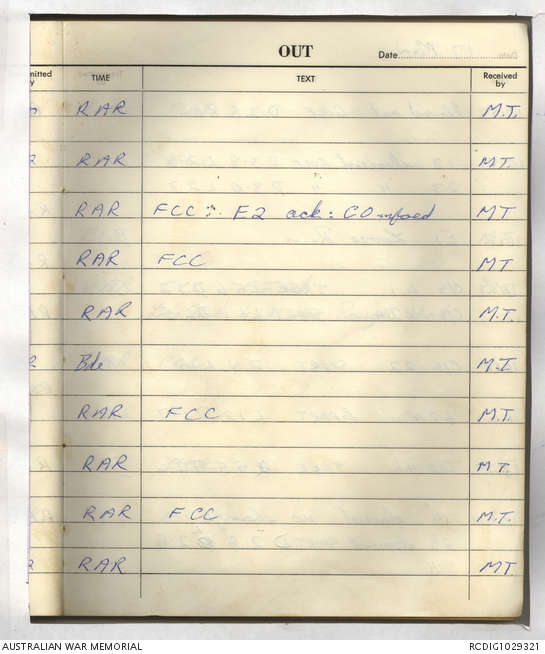 OUT
Date
mitted
y
TIME
TEXT
Received
by
RAR M.T.
RAR M.T.
RAR FCC: F2 ack: CO infoed MT
RAR FCC MT
RAR M.T.
Bde M.T.
RAR FCC M.T.
RAR M.T.
RAR FCC M.T.
RAR MT.
AUSTRALIAN WAR MEMORIAL
RCDIG1029321